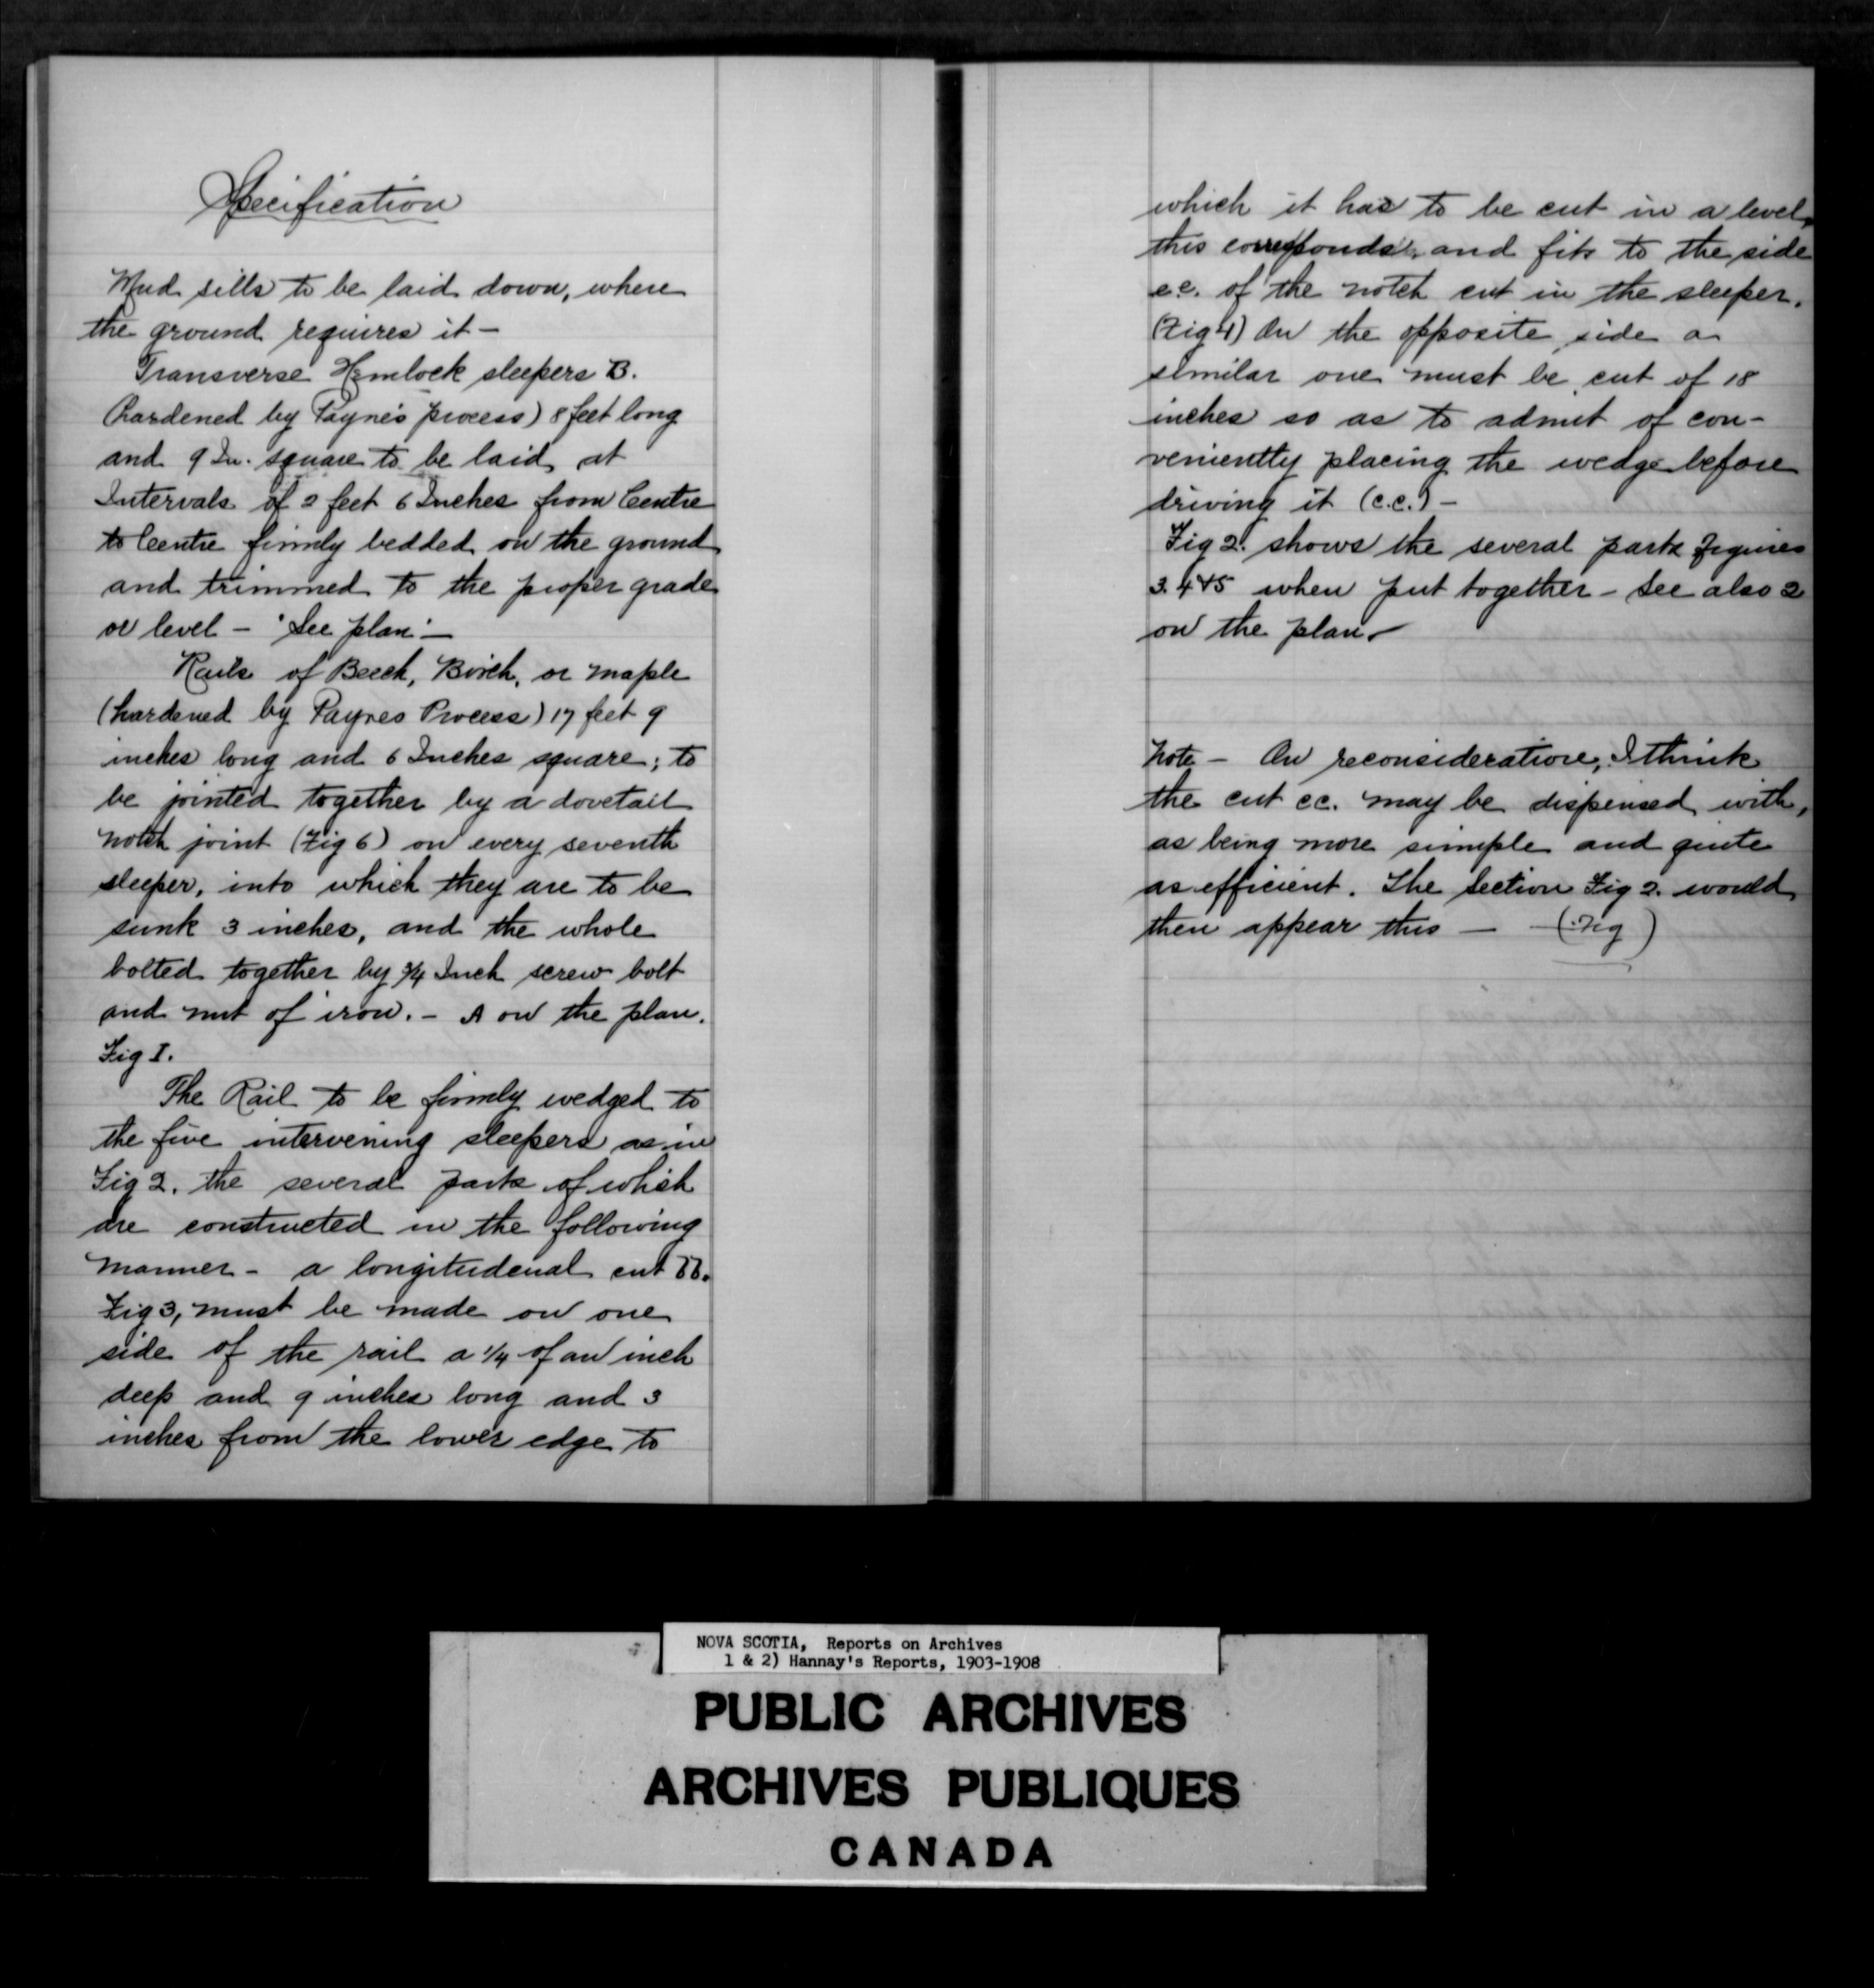 Specification
Mud sills to be laid down, where
the ground requires it —
Transverse Hemlock sleepers B.
(hardened by Payne's process) 8 feet long
and 9 In. square to be laid at
Intervals of 2 feet 6 Inches from Centre
to Centre firmly bedded on the ground
and trimmed to the proper grade
or level — 'See plan' —
Rails of Beech, Birch, or maple
(hardened by Paynes Process) 17 feet 9
inches long and 6 Inches square; to
be jointed together by a dovetail
notch joint (Fig 6) on every seventh
sleeper, into which they are to be
sunk 3 inches, and the whole
bolted together by 3/4 Inch screw bolt
and nut of iron. — A on the plan.
Fig I.
The Rail to be firmly wedged to
the five intervening sleepers as in
Fig 2. the several parts of which
are constructed in the following
manner — a longitudenal cut
Fig 3, must be made on one
side of the rail a 1/4 of an inch
deep and 9 inches long and 3
inches from the lower edge to
which it has to be cut in a level,
this corresponds, and fits to the side
e.e. of the notch cut in the sleeper.
(Fig 4) On the opposite side a
similar one must be cut of 18
inches so as to admit of con-
veniently placing the wedge before
driving it (c.c.) —
Fig 2. shows the several parts figures
3. 4 & 5 when put together — See also 2
on the plan —
Note — On reconsideration, I think
the cut cc. may be dispensed with,
as being more simple and quite
as efficient. The Section Fig 2. would
then appear this — — (Fig )
NOVA SCOTIA, Reports on Archives
1 & 2) Hannay's Reports, 1903-1908
PUBLIC ARCHIVES
ARCHIVES PUBLIQUES
CANADA